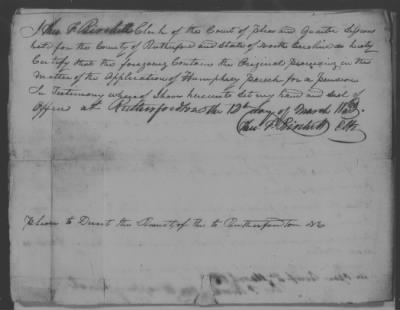 I Theo F Birchett Clerk of the Court of Pleas and Quarter Sessions
held for the County of Rutherford and State of North Carolina do hereby
Certify that the foregoing Contains the Original proceeding in the
matter of the Application of Humphrey Parish for a pension
In Testimony whereof I have hereunto Set my hand and Seal of
Office at Rutherfordton the 12th day of March
Theo F Birchett Clk
Please to Direct the Result of this to Rutherfordton NC